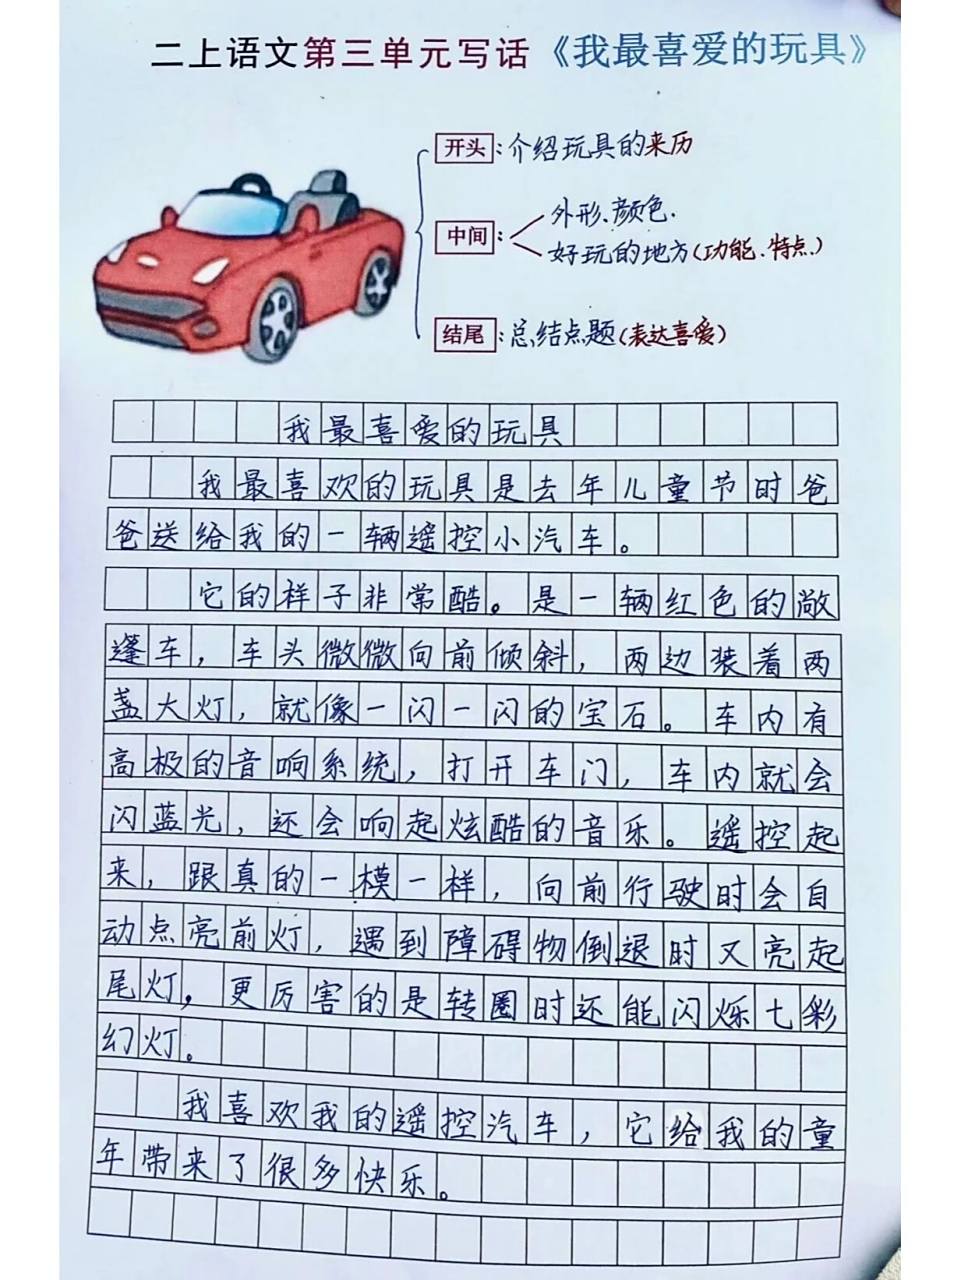 二上语文第三单元写话《我最喜爱的玩具》
开头：介绍玩具的来历
中间：外形、颜色.
好玩的地方(功能、特点)
结尾：总结点题(表达喜爱)
我最喜爱的玩具
我最喜欢的玩具是去年儿童节时爸
爸送给我的一辆遥控小汽车。
它的样子非常酷。是一辆红色的敞
篷车，车头微微向前倾斜，两边装着两
盏大灯，就像一闪一闪的宝石。车内有
高极的音响系统，打开车门，车内就会
闪蓝光，还会响起炫酷的音乐。遥控起
来，跟真的一模一样，向前行驶时会自
动点亮前灯，遇到障碍物倒退时又亮起
尾灯，更厉害的是转圈时还能闪烁七彩
幻灯。
我喜欢我的遥控汽车，它给我的童
年带来了很多快乐。